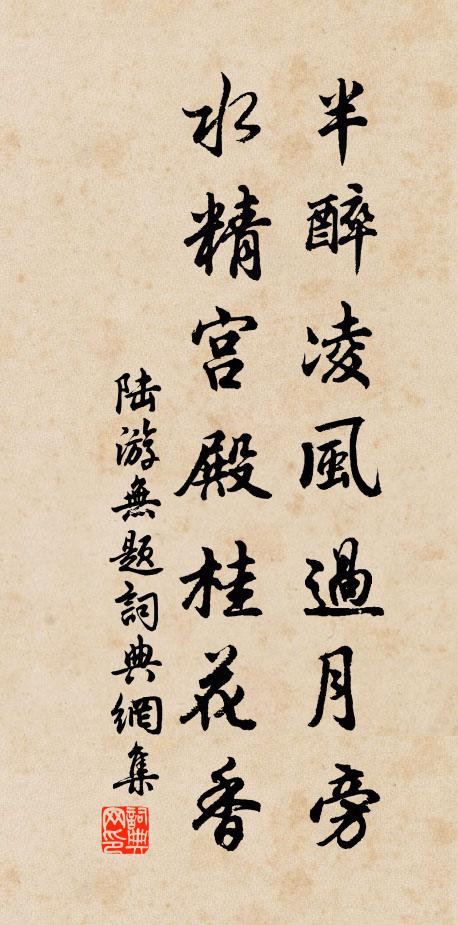 半醉凌風過月旁
水精宮殿桂花香
陆游無题詞典網集
詞典网印